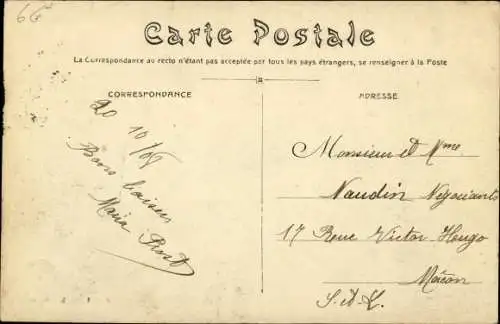 6€
Carte Postale
La Correspondance au recto n'étant pas acceptée par tous les pays étrangers, se renseigner à la Poste
CORRESPONDANCE
20
10/
Bons baisers
Maria
ADRESSE
Monsieur et Mme
Naudin Négociants
17 Rue Victor Hougo
Macon
S.-et-L.